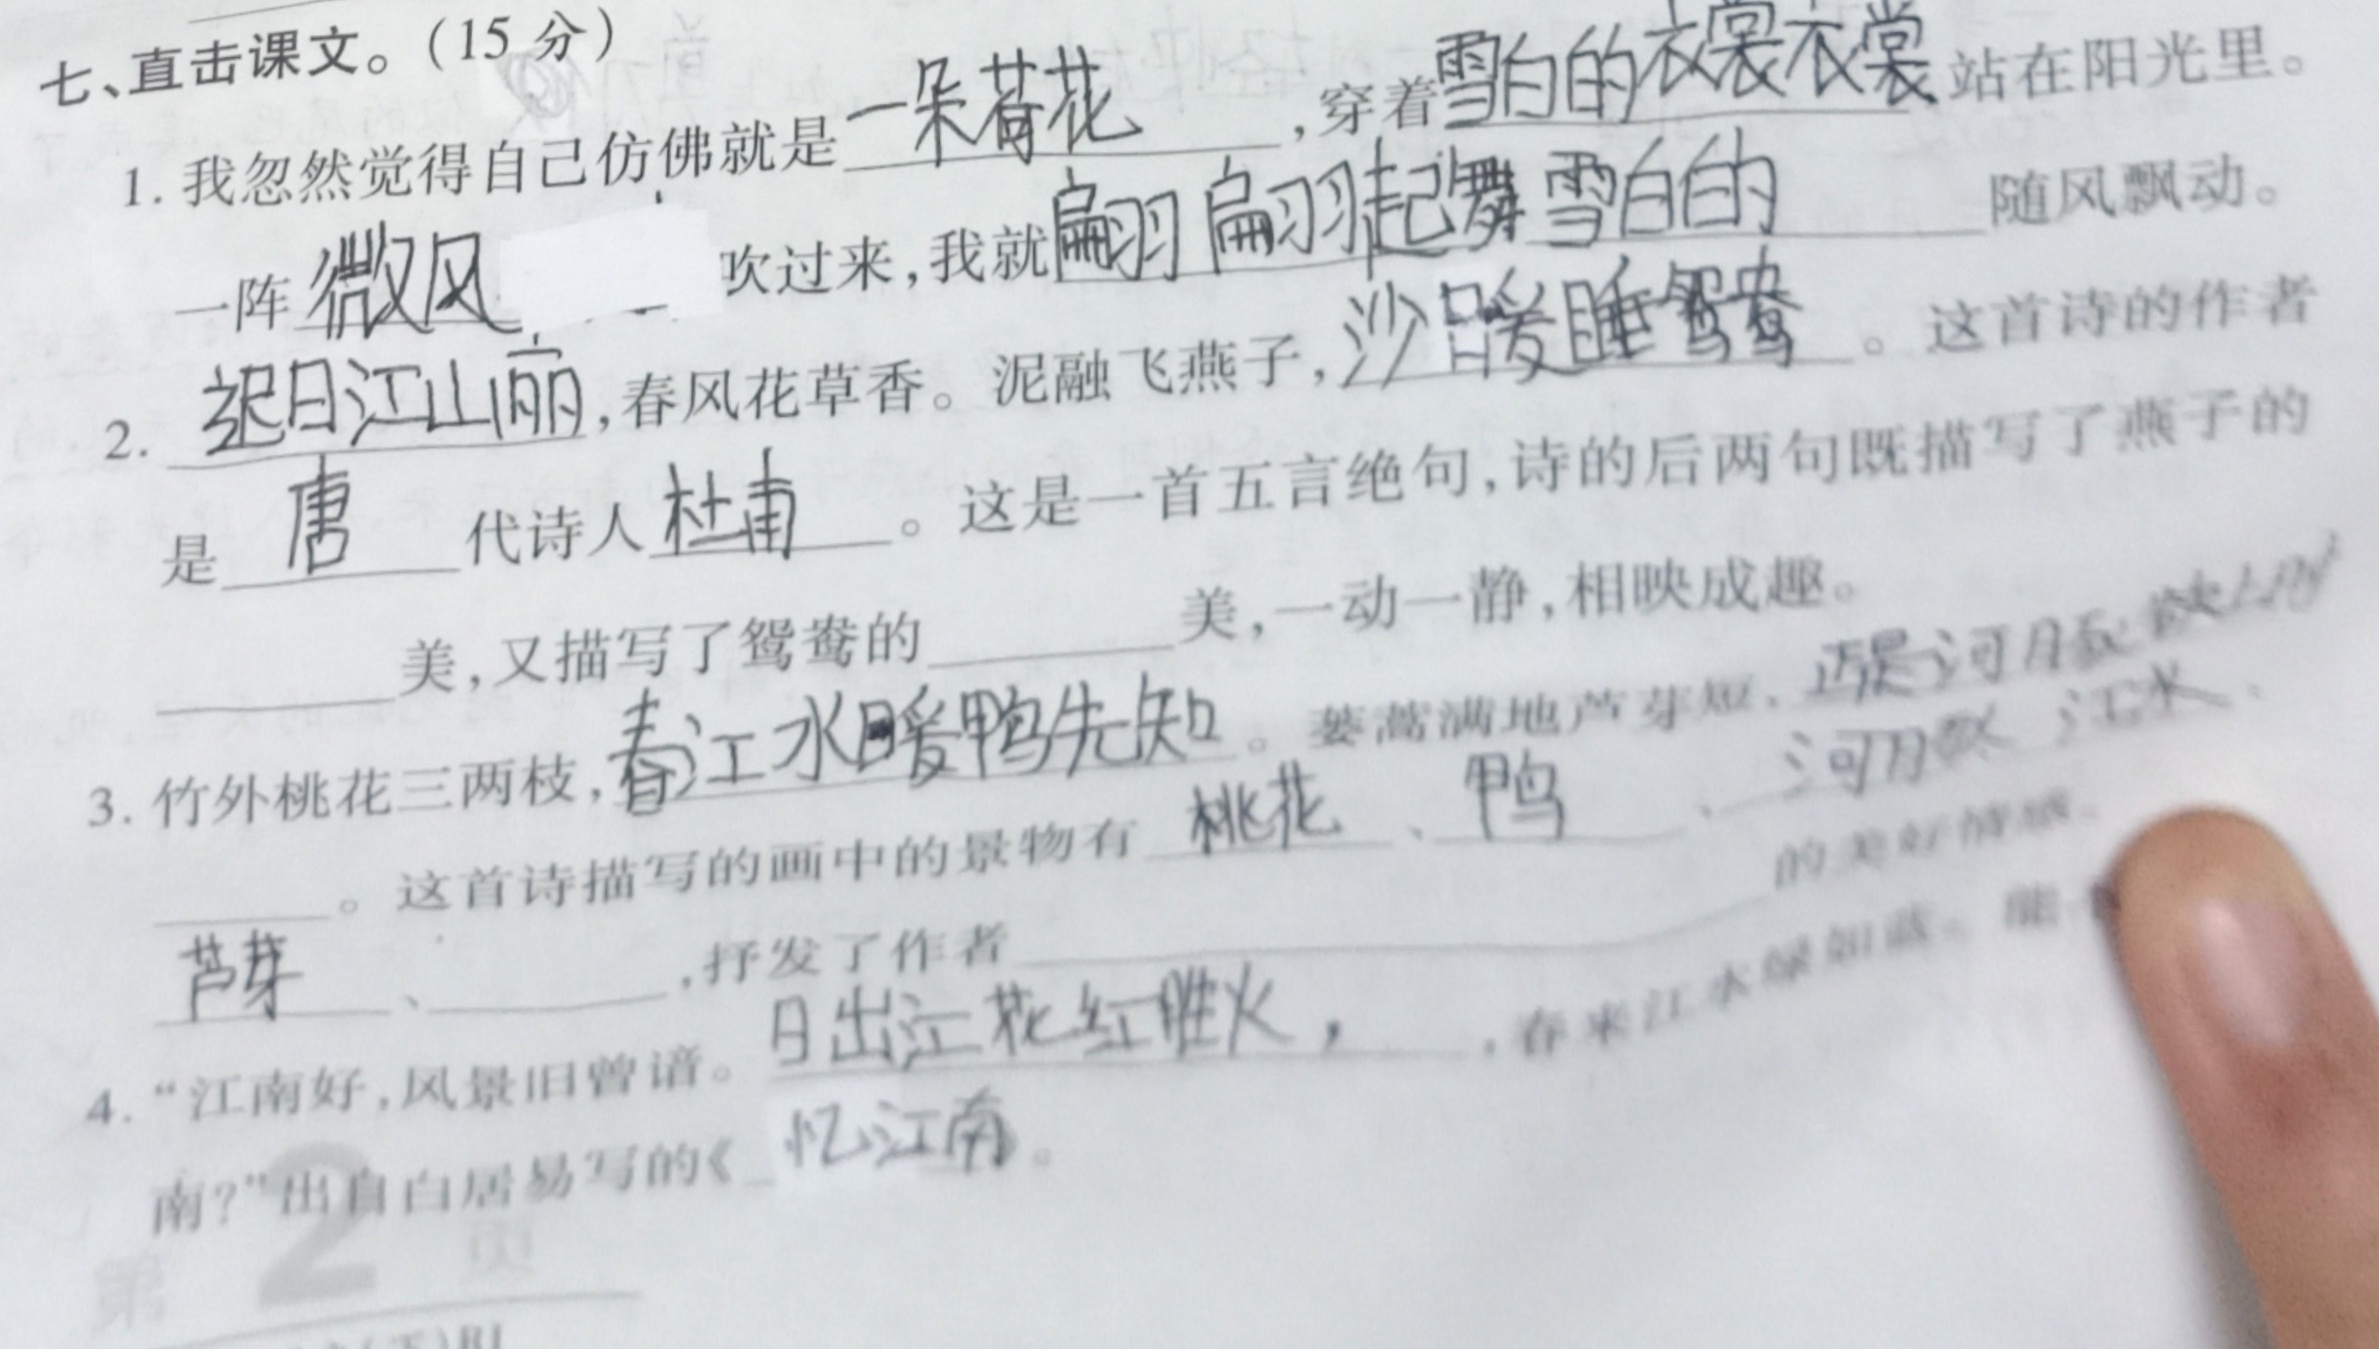 七、直击课文。（15 分）
1. 我忽然觉得自己仿佛就是一朵荷花，穿着雪白的衣裳衣裳站在阳光里。
一阵微风吹过来，我就翩翩起舞雪白的随风飘动。
2. 迟日江山丽，春风花草香。泥融飞燕子，沙暖睡鸳鸯。这首诗的作者
是唐代诗人杜甫。这是一首五言绝句，诗的后两句既描写了燕子的
美，又描写了鸳鸯的美，一动一静，相映成趣。
3. 竹外桃花三两枝，春江水暖鸭先知。蒌蒿满地芦芽短，正是河豚欲上时
。这首诗描写的画中的景物有桃花、鸭、河豚 江水、
芦芽、，抒发了作者的美好情感。
4. “江南好，风景旧曾谙。日出江花红胜火，，春来江水绿如蓝。能
南？”出自白居易写的《忆江南。
第2页